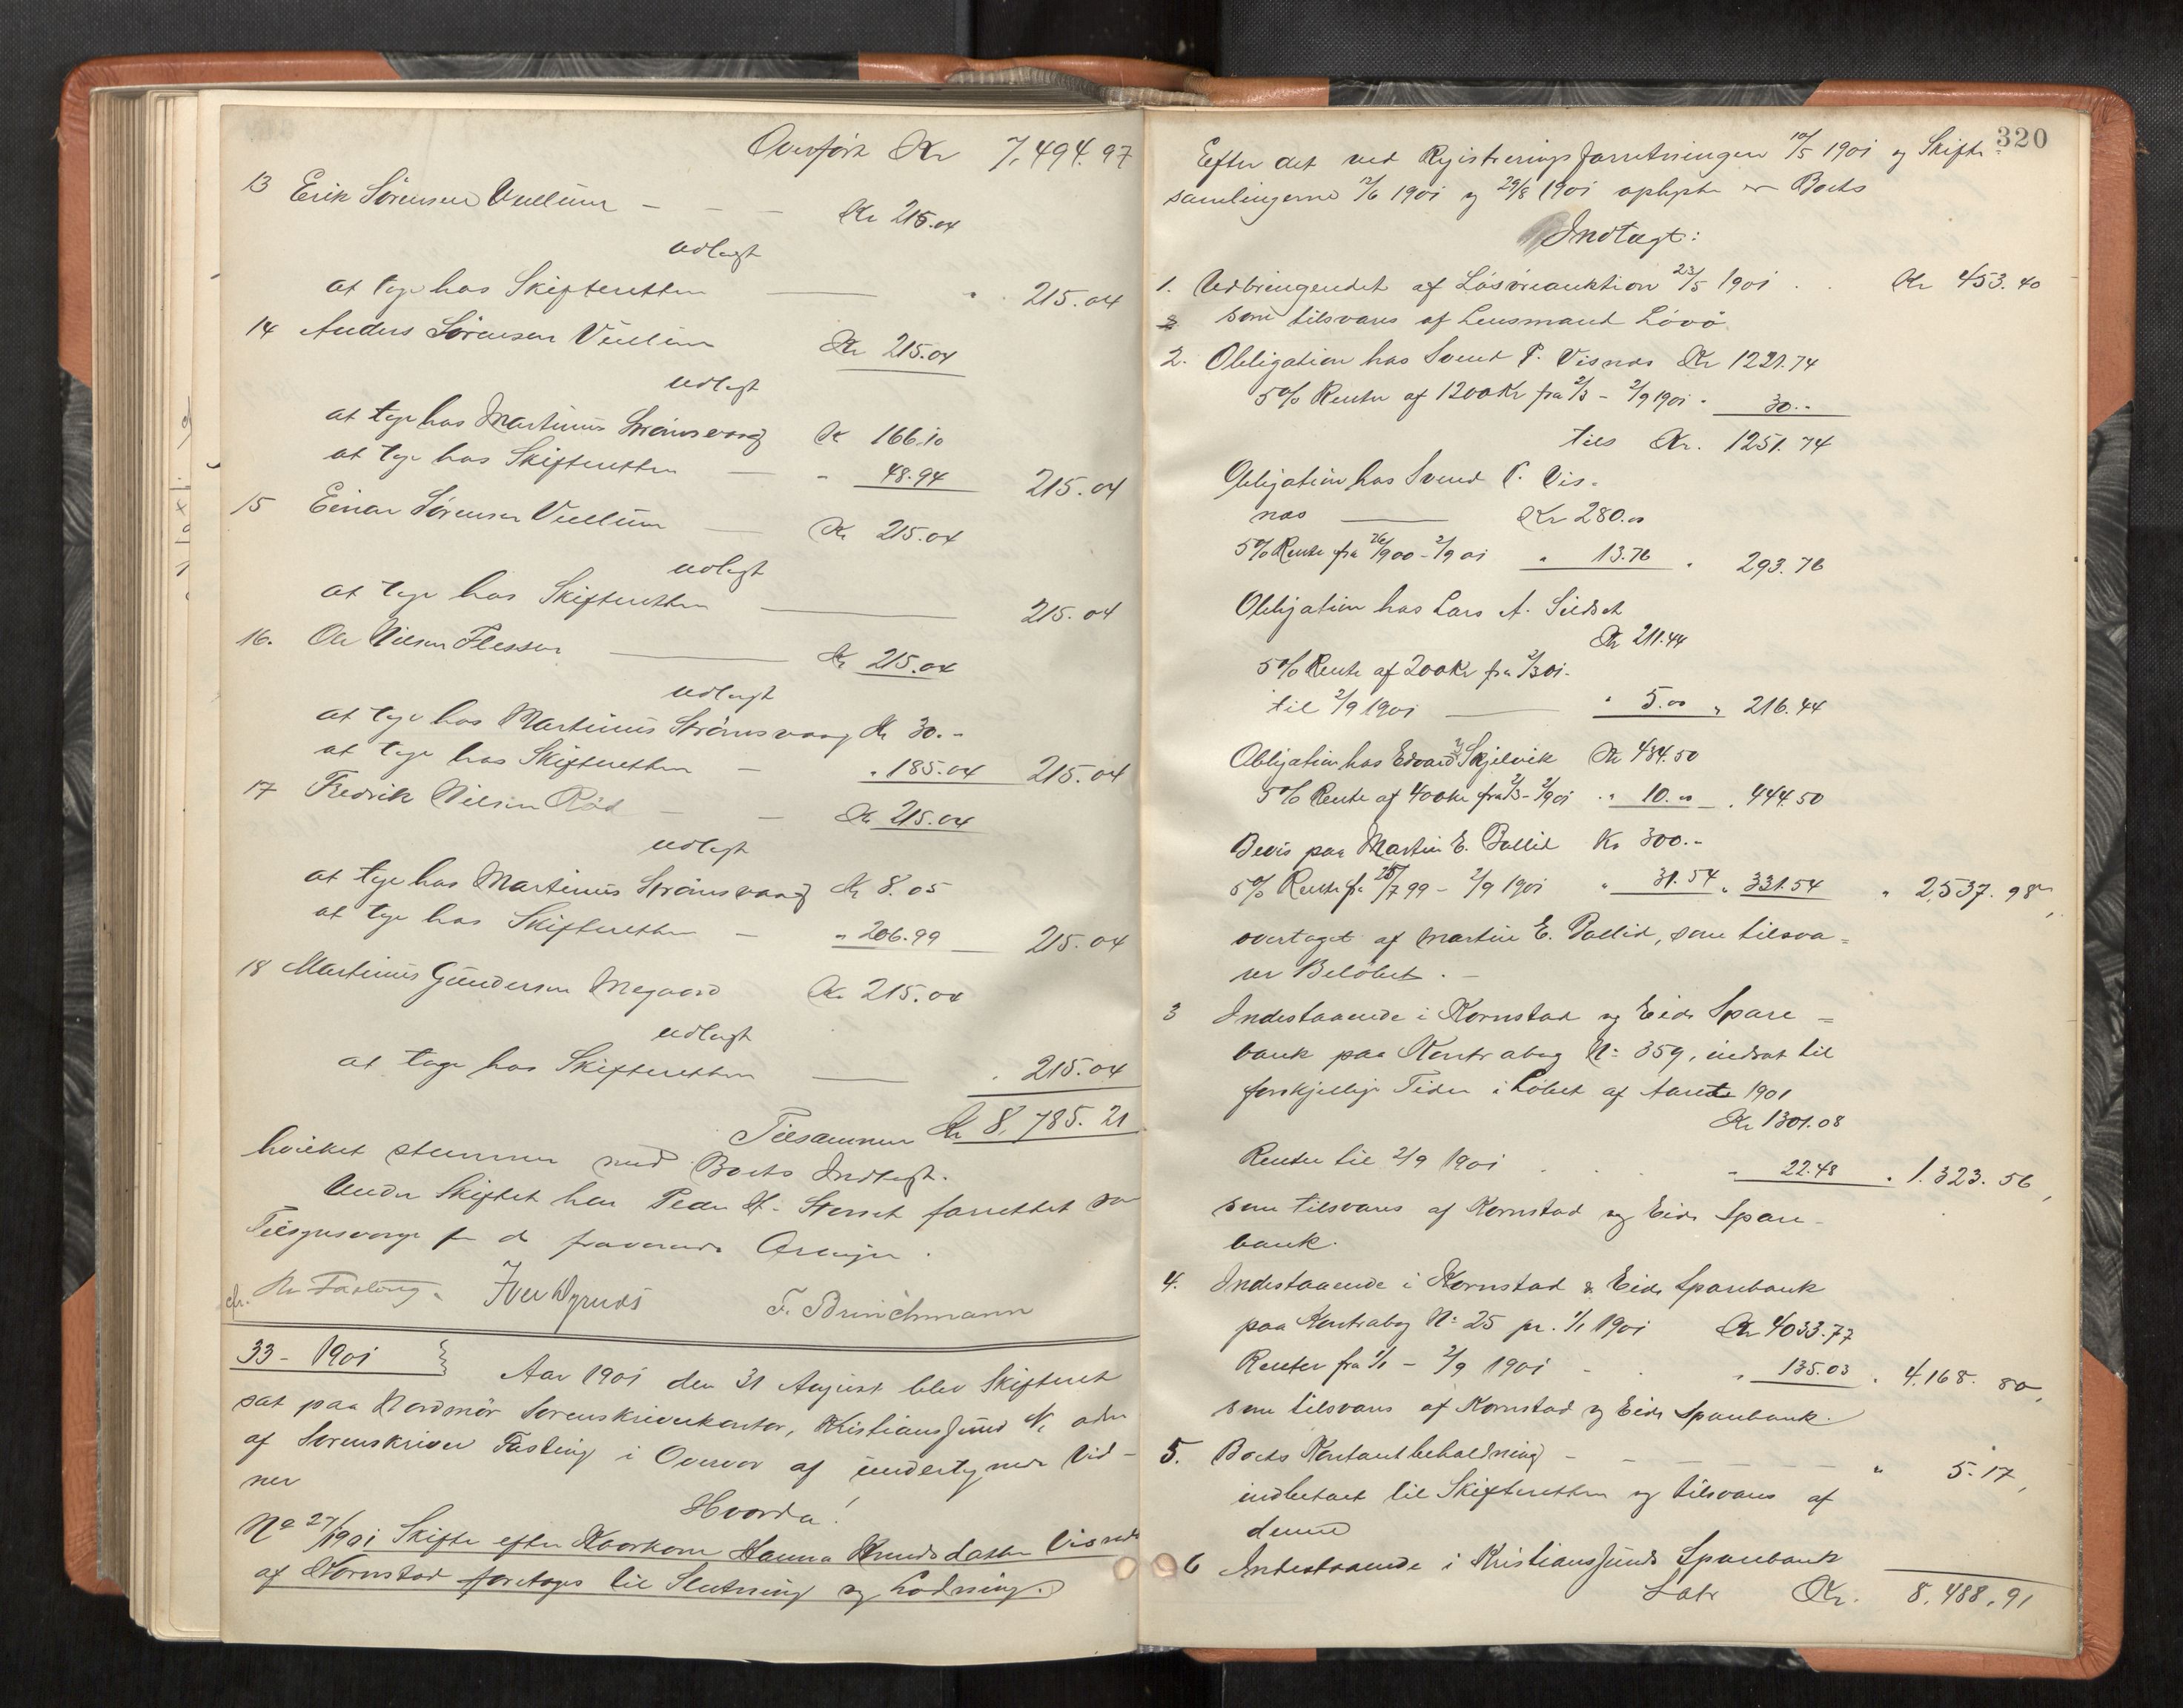 Overført Kr 7,494.97
13 Erik Sørensen Vullum – – – Kr 215.04
udlagt
at tage hos Skifteretten " 215.04
14 Anders Sørensen Vullum Kr 215.04
udlagt
at tage hos Martinus Strømsvaag Kr 166.10
at tage hos Skifteretten — " 48.94 215.04
15 Einar Sørensen Vullum — Kr 215.04
udlagt
at tage hos Skifteretten — 215.04
16. Ole Nilsen Flessen — Kr 215.04
udlagt
at tage hos Martinus Strømsvaag Kr 30.–
at tage hos Skifteretten — " 185.04 215.04
17 Fredrik Nilsen Rød — – Kr 215.04
udlagt
at tage hos Martinus Strømsvaag Kr 8.05
at tage hos Skifteretten — " 206.99 215.04
18 Martinus Gundersen Megaard Kr 215.04
udlagt
at tage hos Skifteretten — " 215.04
Tilsammen Kr 8,785.21
hvilket stemmer med Boets Indtægt.
Under Skiftet har Peder H. Storset forrettet som
Tilsynsværge for de fraværende Arvinger.
Chr. Fasting. Iver Nyrnds F. Brinchmann
33 – 1901 } Aar 1901 den 31 August blev Skifteret
sat paa Nordmør Sorenskriverkontor, Kristianssund N, adm
af Sorenskriver Fasting i Overvær af undertegnede Vid-
ner
Hvorda!
No 27/1901 Skifte efter Kaarkone Hanna Knudsdatter Visnæs
af Kornstad foretages til Slutning og Lodning.
320
Efter det ved Registreringsforretningen 10/5 1901 og Skifte-
samlingerne 12/6 1901 og 29/8 1901 oplyste er Boets
Indtægt:
1. Udbringendet af Løsøreauktion 23/5 1901 . . Kr 453.40
som tilsvares af Lensmand Løvø
2. Obligation hos Svend P. Visnæs Kr 1221.74
5% Rente af 1200 Kr fra 2/3 – 2/9 1901 " 30.–
tils Kr. 1251.74
Obligation hos Svend P. Vis-
næs — Kr 280.00
5% Rente fra /900 – 2/9 01 " 13.76 " 293.76
Obligation hos Lars A. Sildset
Kr 211.44
5% Rente af 200 Kr fra 2/3 01
til 2/9 1901 — " 5.00 " 216.44
Obligation hos Edvard Skjelvik Kr 434.50
5% Rente af 400 Kr fra 2/3 – 2/9 01 " 10.00 " 444.50
Bevis paa Martin E. Bollid Kr 300.–
5% Rente fra 25/7 99 – 2/9 1901 " 31.54 " 331.54 " 2,537.98
overtaget af Martin E. Bollid, som tilsva-
rer Beløbet. –
3 Indestaaende i Kornstad og Eide Spare-
bank paa Kontrabog No 359, indsat til
forskjellige Tider i Løbet af Aaret 1901
Kr 1301.08
Renter til 2/9 1901 . . . " 22.48 " 1.323.56
som tilsvares af Kornstad og Eide Spare-
bank.
4. Indestaaende i Kornstad & Eide Sparebank
paa Kontrabog No 25 pr. 1/1 1901 Kr 4033.77
Renter fra 1/1 – 2/9 1901 – " 135.03 " 4.168.80
som tilsvares af Kornstad og Eide Sparebank.
5. Boets Kontantbeholdning – – – – " 5.17
indbetalt til Skifteretten og tilsvares af
denne
6 Indestaaende i Kristianssunds Sparebank
Latr Kr. 8,488.91